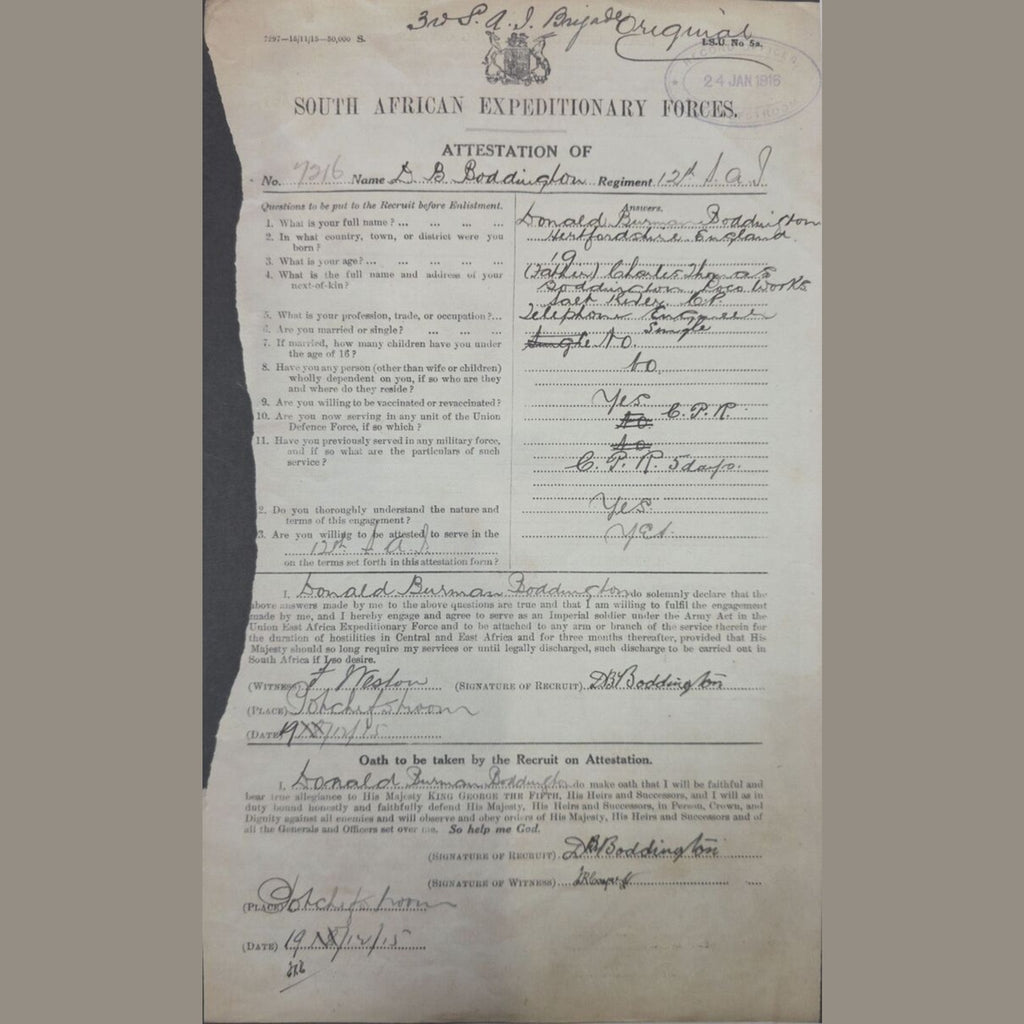 3rd S. A. I. Brigade Original
7297—15/11/15—50,000 S.
I.S.U. No 5a.
24 JAN 1916
SOUTH AFRICAN EXPEDITIONARY FORCES.
ATTESTATION OF
No. 7216 Name D. B. Boddington Regiment 12th S. A. I
Questions to be put to the Recruit before Enlistment. Answers.
1. What is your full name ? ... Donald Burman Boddington
2. In what country, town, or district were you Hertfordshire England
born ?
3. What is your age? ... 19
4. What is the full name and address of your (Father) Charles Thomas
next-of-kin? Boddington Loco Works
Salt River. C.P.
5. What is your profession, trade, or occupation ?... Telephone Engineer
6. Are you married or single? ... Single
7. If married, how many children have you under Single No.
the age of 16 ?
8. Have you any person (other than wife or children) No.
wholly dependent on you, if so who are they
and where do they reside ?
9. Are you willing to be vaccinated or revaccinated ? Yes
10. Are you now serving in any unit of the Union No C. P. R.
Defence Force, if so which ?
11. Have you previously served in any military force, No
and if so what are the particulars of such C. P. R. 5 days.
service ?
2. Do you thoroughly understand the nature and Yes
terms of this engagement ?
3. Are you willing to be attested to serve in the Yes.
12th S A I
on the terms set forth in this attestation form ?
I, Donald Burman Boddington do solemnly declare that the
above answers made by me to the above questions are true and that I am willing to fulfil the engagement
made by me, and I hereby engage and agree to serve as an Imperial soldier under the Army Act in the
Union East Africa Expeditionary Force and to be attached to any arm or branch of the service therein for
the duration of hostilities in Central and East Africa and for three months thereafter, provided that His
Majesty should so long require my services or until legally discharged, such discharge to be carried out in
South Africa if I so desire.
(WITNESS) F Weston (SIGNATURE OF RECRUIT) DB Boddington
(PLACE) Potchefstroom
(DATE) 19/12/15
Oath to be taken by the Recruit on Attestation.
I, Donald Burman Boddington do make oath that I will be faithful and
bear true allegiance to His Majesty KING GEORGE THE FIFTH, His Heirs and Successors, and I will as in
duty bound honestly and faithfully defend His Majesty, His Heirs and Successors, in Person, Crown, and
Dignity against all enemies and will observe and obey orders of His Majesty, His Heirs and Successors and of
all the Generals and Officers set over me. So help me God.
(SIGNATURE OF RECRUIT) DB Boddington
(SIGNATURE OF WITNESS)
(PLACE) Potchefstroom
(DATE) 19/12/15